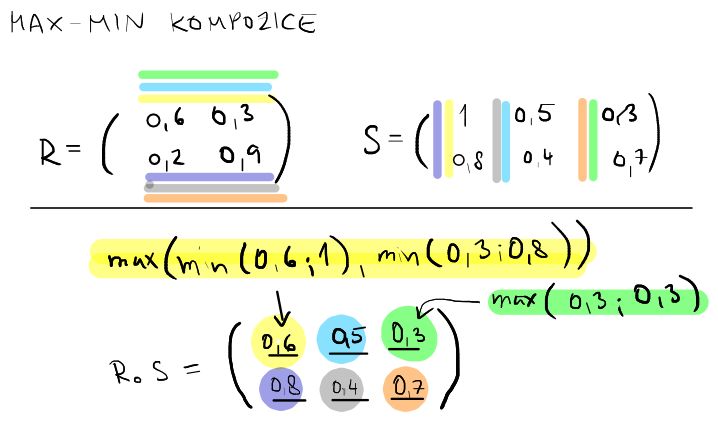 MAX-MIN KOMPOZICE
R = ( 0,6 0,3 ) S = ( 1 0,5 0,3 )
0,2 0,9 0,8 0,4 0,7
max(min(0,6;1), min(0,3;0,8))
max(0,3;0,3)
R∘S = ( 0,6 0,5 0,3 )
0,8 0,4 0,7